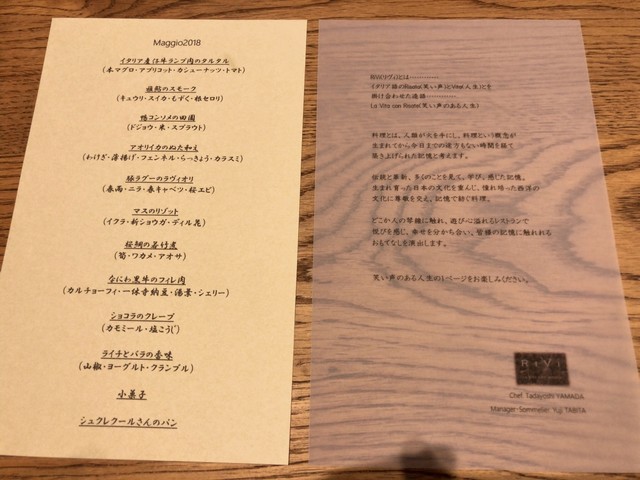 Maggio2018
イタリア産仔牛ランプ肉のタルタル
(本マグロ・アプリコット・カシューナッツ・トマト)
稚鮎のスモーク
(キュウリ・スイカ・もずく・根セロリ)
鴨コンソメの田園
(ドジョウ・米・スプラウト)
アオリイカのぬた和え
(わけぎ・薄揚げ・フェンネル・らっきょう・カラスミ)
豚ラグーのラヴィオリ
(春雨・ニラ・春キャベツ・桜エビ)
マスのリゾット
(イクラ・新ショウガ・ディル昆)
桜鯛の若竹煮
(筍・ワカメ・アオサ)
なにわ黒牛のフィレ肉
(カルチョーフィ・一休寺納豆・湯葉・シェリー)
ショコラのクレープ
(カモミール・塩こうじ)
ライチとバラの香味
(山椒・ヨーグルト・クランブル)
小菓子
シュクレクールさんのパン
RiVi(リヴィ)とは…………
イタリア語のRisata(笑い声)とVita(人生)とを
掛け合わせた造語…………
La Vita con Risata(笑い声のある人生)
料理とは、人類が火を手にし、料理という概念が
生まれてから今日までの途方もない時間を経て
築き上げられた記憶と考えます。
伝統と革新、多くのことを見て、学び、感じた記憶。
生まれ育った日本の文化を重んじ、憧れ培った西洋の
文化に尊敬を交え、記憶で紡ぐ料理。
どこか人の琴線に触れ、遊び心溢れるレストランで
悦びを感じ、幸せを分かち合い、皆様の記憶に触れれる
おもてなしを演出します。
笑い声のある人生の1ページをお楽しみください。
RiVi
Chef Tadayoshi YAMADA
Manager・Sommelier Yuji TABITA